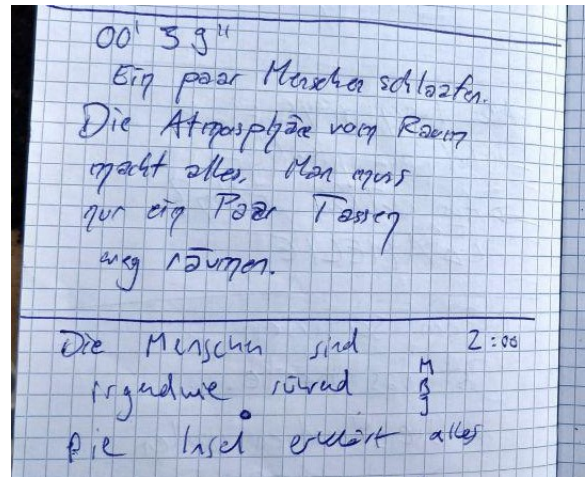 00' 39"
Ein paar Menschen schlaafen.
Die Atmosphäre vom Raum
macht alles. Man muss
nur ein Paar Tassen
weg räumen.
Die Menschen sind 2:00
irgendwie rührend M
B
J
Die Insel erklärt alles